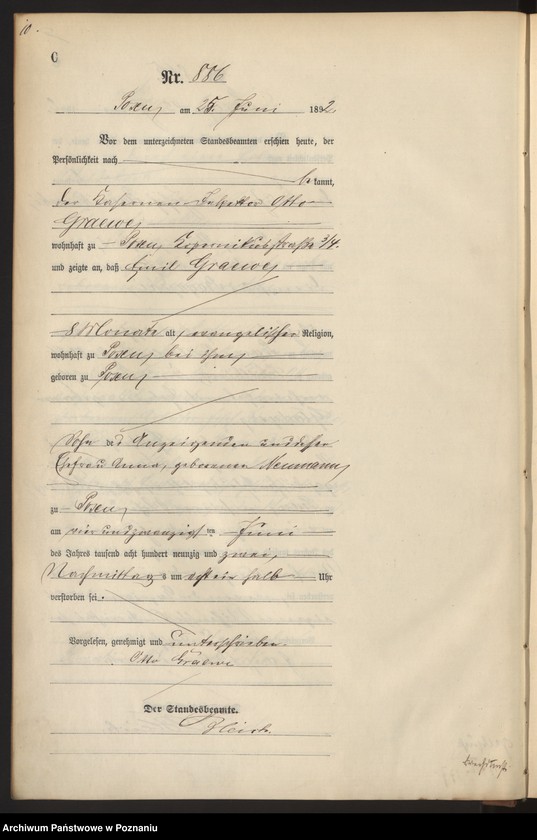 10.
C
Nr. 886
Posen, am 25. Juni 1892
Vor dem unterzeichneten Standesbeamten erschien heute, der
Persönlichkeit nach
bekannt,
der Kasernen-Inspektor Otto
Graewe,
wohnhaft zu Posen, Kopernikusstraße 3/4.
und zeigte an, daß Emil Graewe,
8 Monate alt, evangelischer Religion,
wohnhaft zu Posen, bei ihm,
geboren zu Posen,
Sohn des Anzeigenden und dessen
Ehefrau Anna, geborenen Neumann,
zu Posen,
am vier und zwanzigsten Juni
des Jahres tausend acht hundert neunzig und zwei,
Nachmittags um acht ein halb Uhr
verstorben sei.
Vorgelesen, genehmigt und unterschrieben
Otto Graewe
Der Standesbeamte.
Archiwum Państwowe w Poznaniu